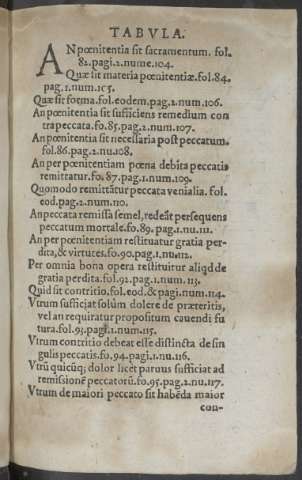 TABVLA.
AN pœnitentia sit sacramentum. fol.
82. pagi. 2. nume. 104.
Quæ sit materia pœnitentiæ. fol. 84.
pag. 1. num. 105.
Quæ sit forma. fol. eodem. pag. 2. num. 106.
An pœnitentia sit sufficiens remedium con
tra peccata. fo. 85. pag. 2. num. 107.
An pœnitentia sit necessaria post peccatum.
fol. 86. pag. 2. nu. 108.
An per pœnitentiam pœna debita peccatis
remittatur. fo. 87. pag. 1. num. 109.
Quomodo remittātur peccata venialia. fol.
eod. pag. 2. num. 110.
An peccata remissa semel, redeāt per sequens
peccatum mortale. fo. 89. pag. 1. nu. 111.
An per pœnitentiam restituatur gratia per-
dita, & virtutes. fo. 90. pag. 1. nu. 112.
Per omnia bona opera restituitur aliqd de
gratia perdita. fol. 92. pag. 1. num. 113.
Quid sit contritio. fol. eod. & pagi. num. 114.
Vtrum sufficiat solùm dolere de præteritis,
vel an requiratur propositum cauendi fu
tura. fol. 93. pag. 1. num. 115.
Vtrum contritio debeat esse distincta de sin
gulis peccatis. fo. 94. pagi. 1. nu. 116.
Vtrū quicūq; dolor licet paruus sufficiat ad
remissionē peccatorū. fo. 95. pag. 2. nu. 117.
Vtrum de maiori peccato sit habēda maior
con-